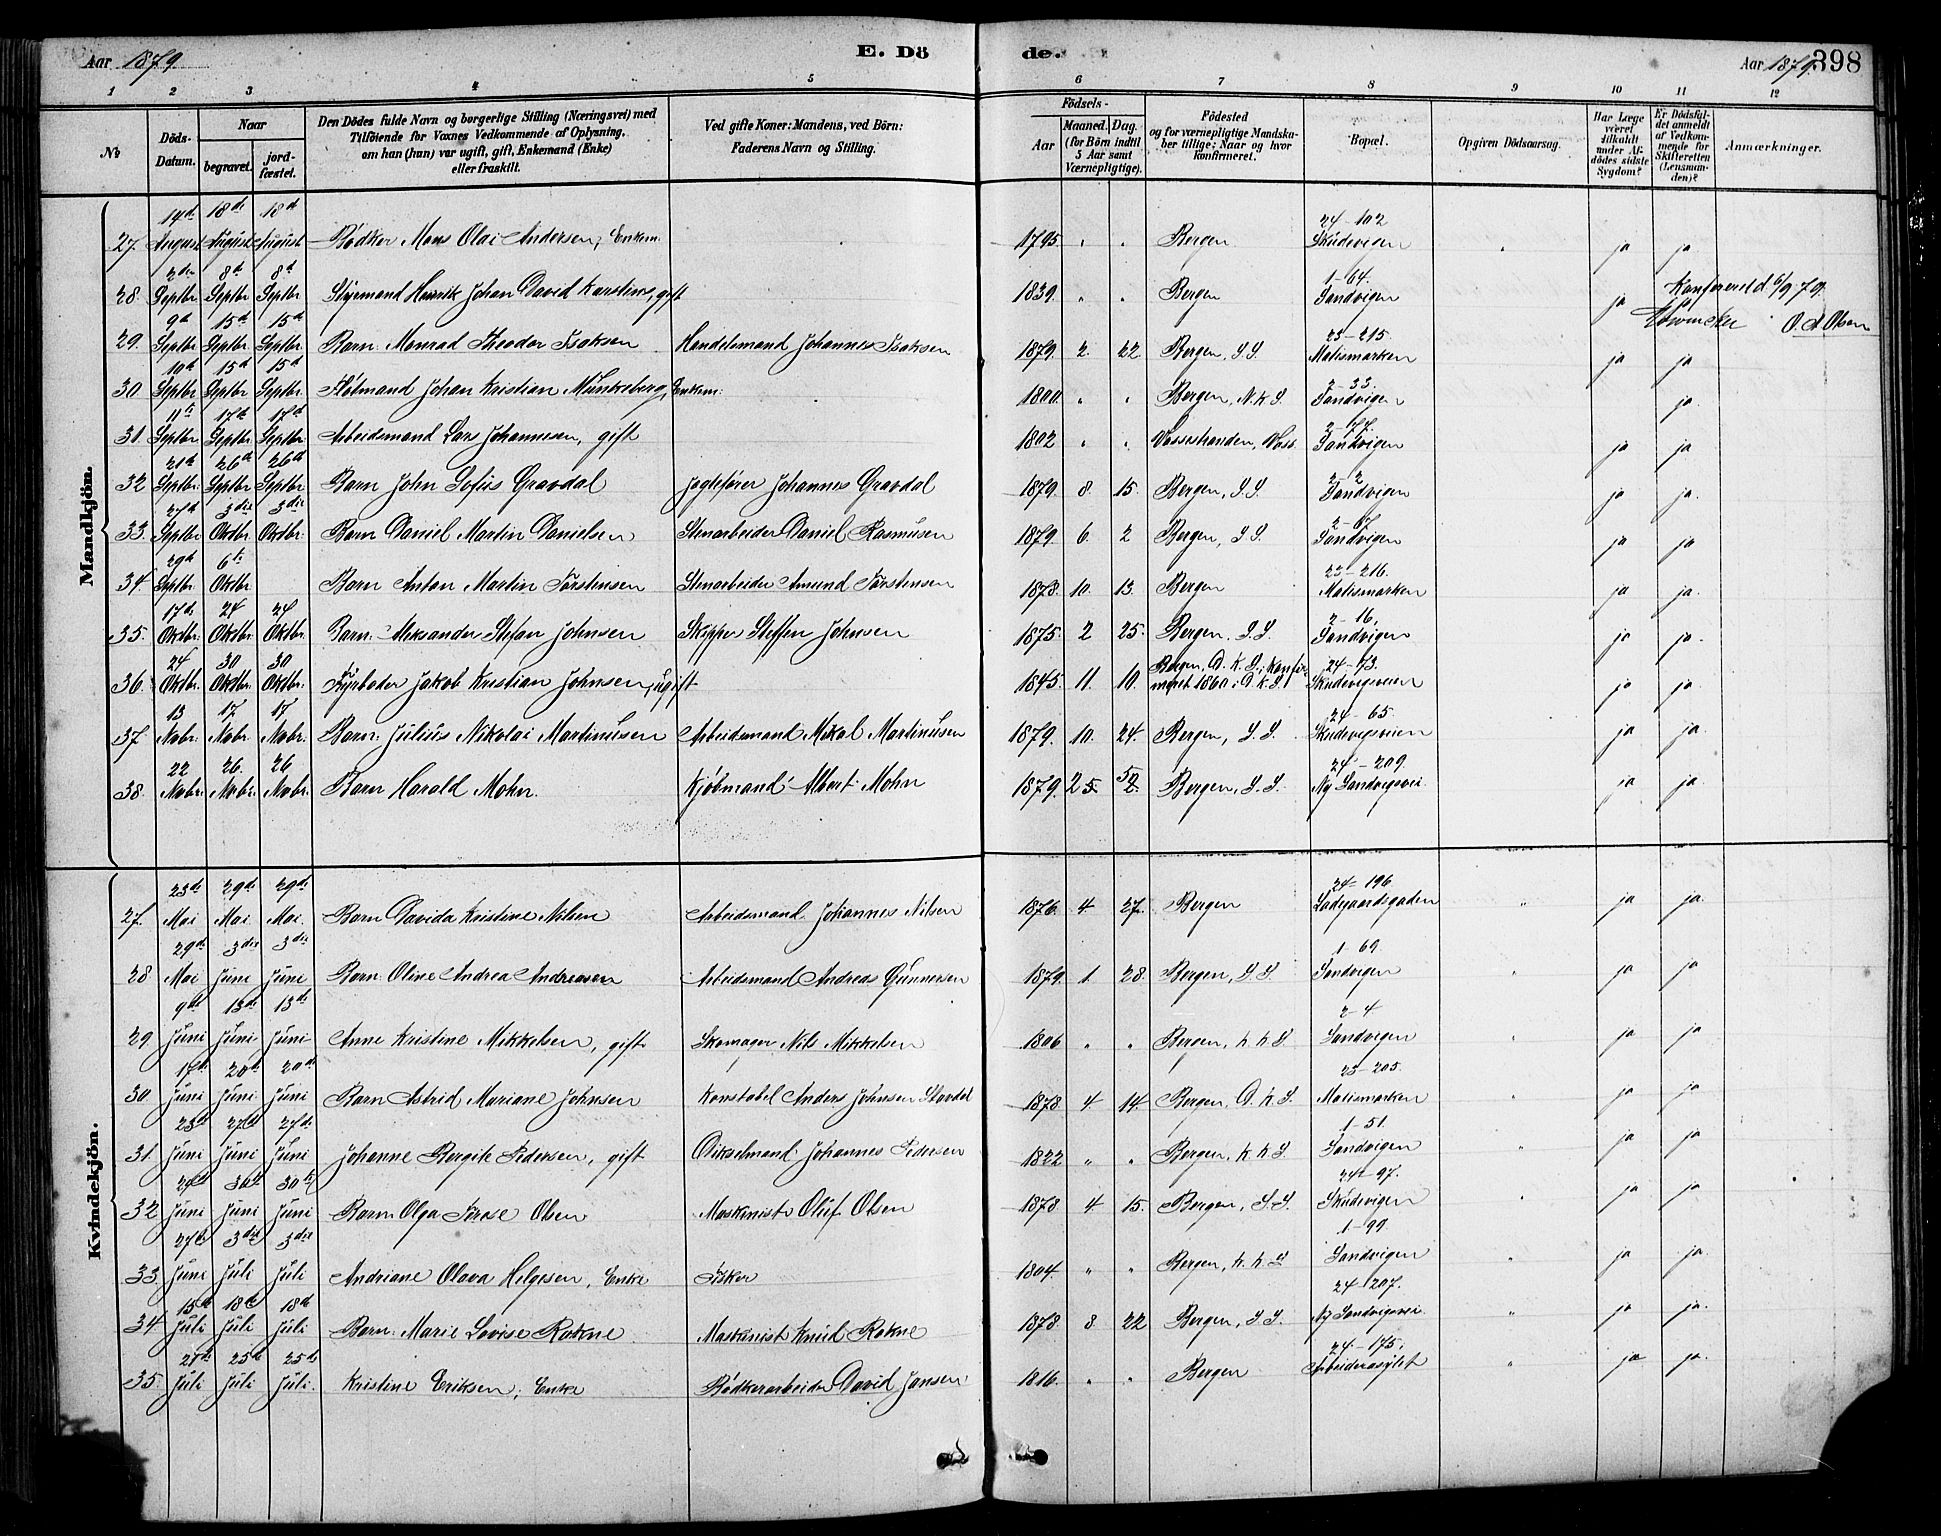 Aar 1879. E. Dö de. Aar 1879. 398
1 2 3 4 5 6 7 8 9 10 11 12
No Döds-Datum. Naar begravet. jordfæstet. Den Dödes fulde Navn og borgerlige Stilling (Næringsvei) med Tilföiende for Voxnes Vedkommende af Oplysning, om han (hun) var ugift, gift, Enkemand (Enke) eller fraskilt. Ved gifte Koner: Mandens, ved Börn: Faderens Navn og Stilling. Födsels- Aar Maaned. Dag. (for Börn indtil 5 Aar samt Værnepligtige). Födested og for værnepligtige Mandskaber tillige: Naar og hvor konfirmeret. Bopæl. Opgiven Dödsaarsag. Har Læge været tilkaldt under Afdödes sidste Sygdom? Er Dödsfaldet anmeldt af Vedkommende for Skifteretten (Lensmanden)? Anmærkninger.
Mandkjön.
14de 18de 18d 24-102
27. August August August Bødker Mons Olai Andersen, Enkem. 1795 " " Bergen Skudevigen " ja ja
2den 8d 8d 1-64.
28. Septbr Septbr Septbr Styrmand Henrik Johan David Karstens, gift 1839. " " Bergen Sandvigen ja ja Konfereret d. 6/9 79.
O. A. Olsen
9d 15d 15d 23-215.
29. Septbr Septbr Septbr Barn: Monrad Theodor Isaksen Handelsmand Johannes Isaksen 1879. 2. 22. Bergen, S.S. Malismarken ja ja
10d 15d 15d 2-33.
30. Septbr Septbr Septbr Fløtmand Johan Kristian Munkeberg, Enkem: 1800. " " Bergen, N.k.S. Sandvigen ja.
11te 17d 17d 2-77.
31. Septbr Septbr Septbr Arbeidsmand Lars Johannesen, gift 1802 " " Vossestranden, Voss. Sandvigen ja ja
21d 26d 26d 2-2
32 Septbr. Septbr Septbr. Barn John Sofus Gravdal Jagtefører Johannes Gravdal 1879. 8. 15. Bergen, S.S. Sandvigen ja ja.
27d 3die 3die 2-67.
33. Septbr Oktbr. Oktbr. Barn Daniel Martin Danielsen Stenarbeider Daniel Rasmussen 1879 6. 2 Bergen, S.S. Sandvigen ja ja
29d 6te 23-216.
34. Septbr. Oktbr Barn Anton Martin Torstensen Stenarbeider Amund Torstensen 1878. 10. 13. Bergen Malismarken ja ja.
17de 24 24 2-16,
35. Oktbr. Oktbr. Oktbr. Barn: Aleksander Stefan Johnsen Skipper Steffen Johnsen 1875. 2 25. Bergen, S.S. Sandvigen ja ja.
24 30 30 24-73.
36. Oktbr. Oktbr. Oktbr. Fyrbøder Jakob Kristian Johnsen, ugift 1845. 11. 10. Bergen, D.K.S., konfirmeret 1860 i D.k.S. Skudevigsveien ja ja.
13 17 17 24-65.
37. Nobr. Nobr. Nobr. Barn: Julius Nikolai Martinusen Arbeidsmand Mikal Martinusen 1879. 10. 24. Bergen, S.S. Skudevigsveien ja ja.
22 26. 26 24-209.
38. Nobr. Nobr. Nobr. Barn Harald Mohn. Kjøbmand Albert Mohn 1879. Bergen, S.S. Ny Sandvigsvei. ja ja.
Kvindekjön.
23de 29de 29de 24-196
27. Mai Mai Mai. Barn Davida Kristine Nilsen Arbeidsmand Johannes Nilsen 1876. 4. 27. Bergen Ladegaardsgaden " ja ja.
29de 3die 3die 1-69
28 Mai Juni Juni Barn: Oline Andrea Andreasen Arbeidsmand Andreas Gunnersen 1879. 1. 28. Bergen, S.S. Sandvigen " ja ja
9de 13de 13de 2-4
29. Juni Juni Juni Anne Kristine Mikkelsen, gift Skomager Nils Mikkelsen 1806 " " Bergen, k.k.S. Sandvigen " ja ja
17de 20de 20de 23-205.
30. Juni Juni Juni Barn Astrid Mariane Johnsen Konstabel Anders Johnsen 1878 4 14. Bergen, D.k.S. Malismarken " ja ja
23de 27de 27de 1-51.
31. Juni Juni Juni Johanne Bergite Pedersen, gift Dikselmand Johannes Pedersen 1822 " " Bergen, k.k.S. Sandvigen " ja ja.
30te 30te 24-97.
32 Juni Juni Juni Barn Olga Olsen Maskinist Oluf Olsen 1878 4 15. Bergen, S.S. Skudevigen " ja ja.
27de 3die 3die 1-99
33. Juni Juli Juli Andriane Olava Helgesen, Enke Fisker 1804. " " Bergen, k.k.S Sandvigen " ja ja.
15d 18de 18d 24-207.
34 Juli Juli Juli Barn: Marie Lovise Rokne Maskinist Knud Rokne 1878. 8. 22 Bergen, S.S. Ny Sandvigsvei. " ja ja.
25d 25d 24-175,
35. Juli Juli Juli. Kristine Eriksen, Enke Bødkerarbeider David Jansen 1816. " " Bergen Arbeiderasylet " ja ja.